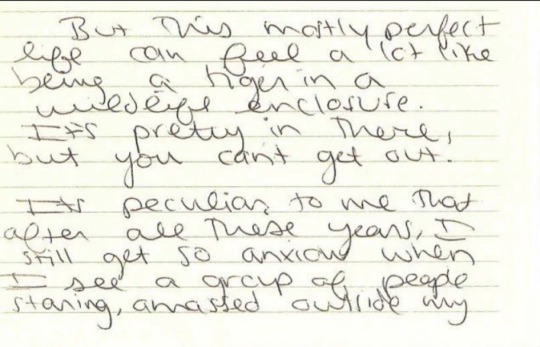 But This mostly perfect
life can feel a lot like
being a tiger in a
wildlife enclosure.
It's pretty in There,
but you can't get out.
It's peculiar, to me That
after all These years, I
still get so anxious when
I see a group of people
staring, amassed outside my